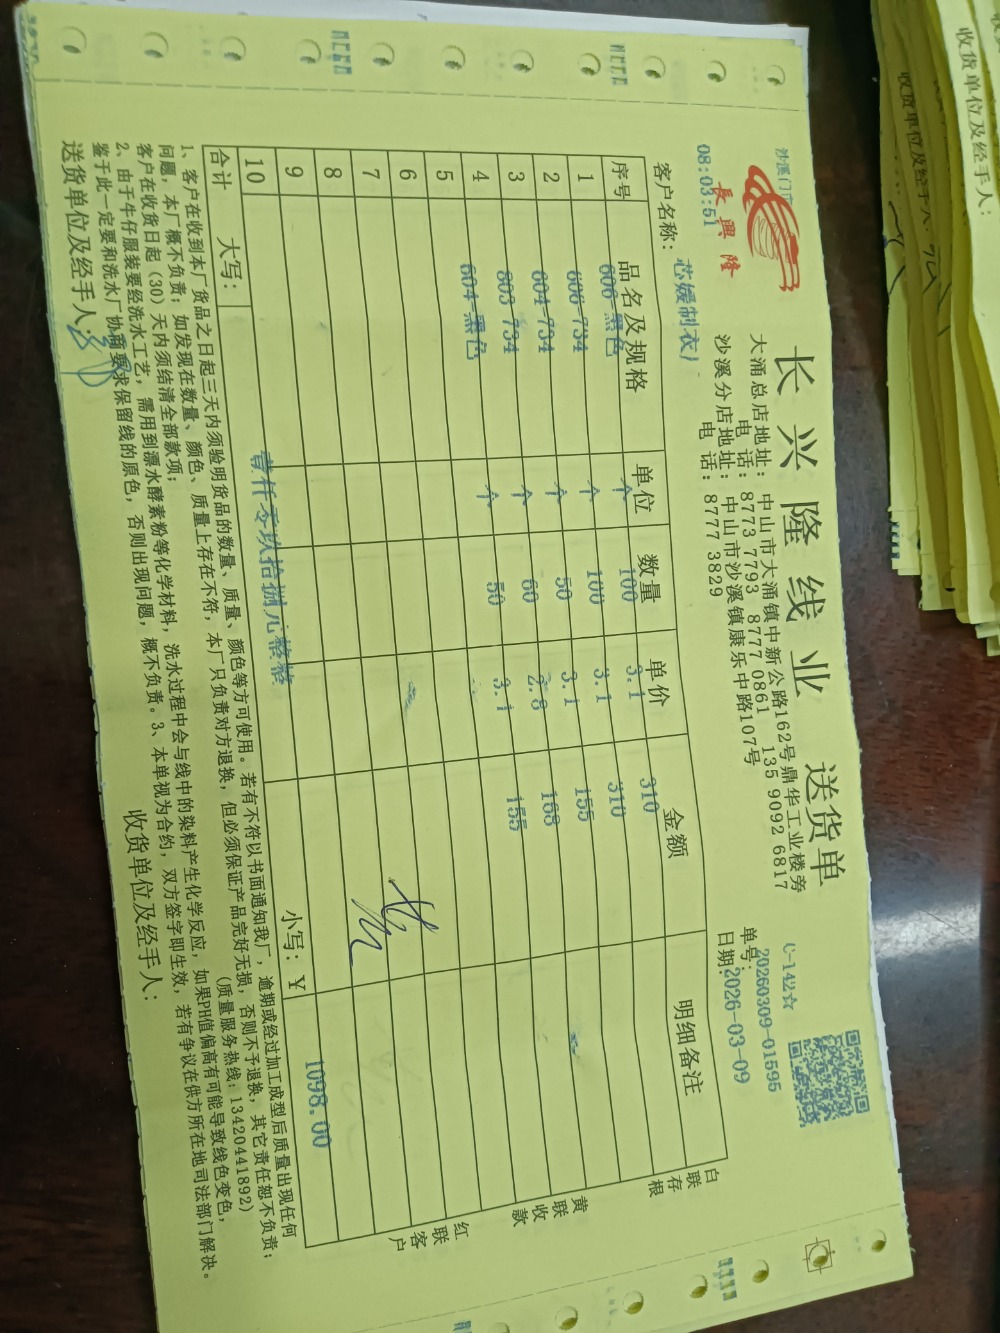 沙溪门店
長興隆
08:03:51
长兴隆线业 送货单
大涌总店地址：中山市大涌镇中新公路162号鼎华工业楼旁
电 话：8773 7793 8777 0861 135 9092 6817
沙溪分店地址：中山市沙溪镇康乐中路107号
电 话：8777 3829
C-142☆
单号：20260309-01595
日期：2026-03-09
客户名称：芯媛制衣厂
序号 品名及规格 单位 数量 单价 金额 明细备注
606-黑色 个 100 3.1 310
1 606-734 个 100 3.1 310
2 604-734 个 50 3.1 155
3 803-734 个 60 2.8 168
4 604-黑色 个 50 3.1 155
5
6
7
8
9
10
合计 大写： 壹仟零玖拾捌元整 小写：￥ 1098.00
白联存根
黄联收款
红联客户
1、客户在收到本厂货品之日起三天内须验明货品的数量、质量、颜色等方可使用。若有不符以书面通知我厂，逾期或经过加工成型后质量出现任何
问题，本厂概不负责；如发现在数量、颜色、质量上存在不符，本厂只负责对方退换，但必须保证产品完好无损，否则不予退换，其它责任恕不负责；
客户在收货日起（30）天内须结清全部款项；（质量服务热线：13420441892）
2、由于牛仔服装要经洗水工艺，需用到漂水酵素粉等化学材料，洗水过程中会与线中的染料产生化学反应，如果PH值偏高有可能导致线色变色，
鉴于此一定要和洗水厂协商要求保留线的原色，否则出现问题，概不负责。3、本单视为合约，双方签字即生效，若有争议在供方所在地司法部门解决。
送货单位及经手人：
收货单位及经手人：
收货单位及经手人：
收货单位及经手人：